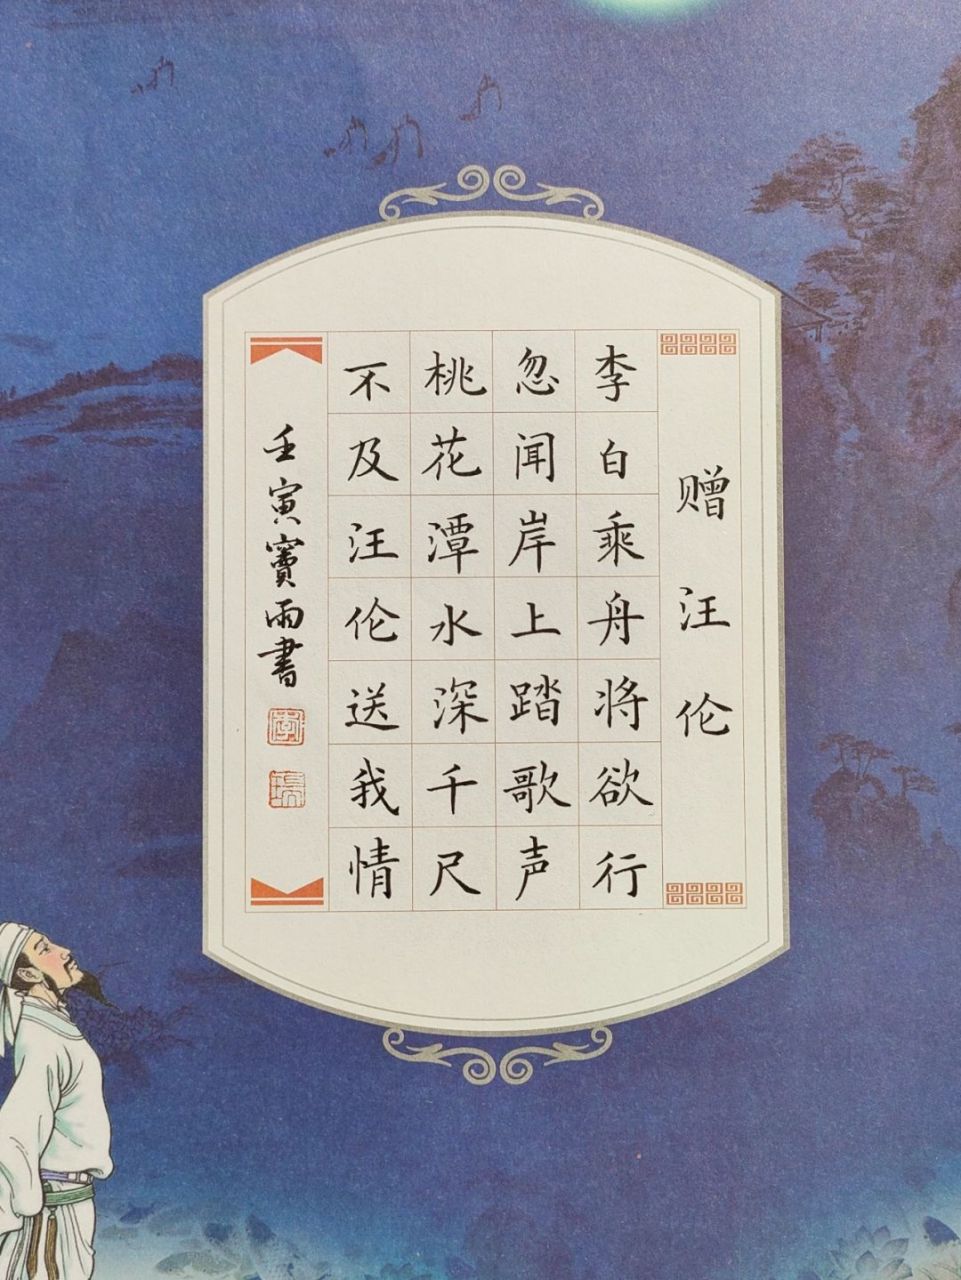 赠汪伦
李白乘舟将欲行
忽闻岸上踏歌声
桃花潭水深千尺
不及汪伦送我情
壬寅窦雨書